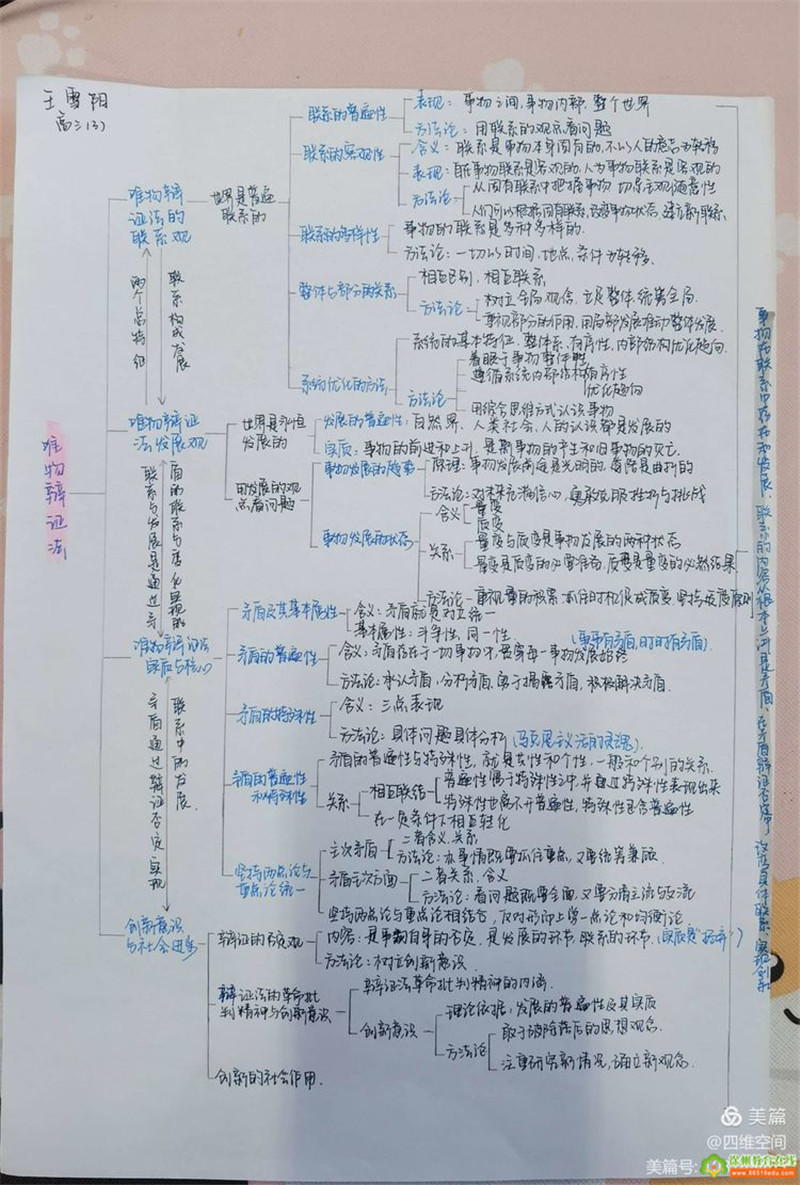 王雪阳
高三(3)
唯物辩证法
唯物辩
证法的
联系观
世界是普遍
联系的
联系的普遍性
表现：事物之间,事物内部,整个世界
方法论：用联系的观点看问题
联系的客观性
含义：联系是事物本身固有的,不以人的意志为转移
表现：自在事物联系是客观的,人为事物联系是客观的
方法论
从固有联系中把握事物 切忌主观随意性
人们可以根据固有联系,改变事物状态,建立新联系
联系的多样性
事物的联系是多种多样的.
方法论：一切以时间,地点,条件为转移.
整体与部分的关系
相互区别,相互联系
方法论
树立全局观念,立足整体,统筹全局.
重视部分的作用,用局部发展推动整体发展.
系统优化的方法
系统的基本特征,整体系,有序性,内部结构优化趋向.
方法论
着眼于事物整体性
遵循系统内部结构有序性
优化趋向
用综合思维方式认识事物
两个总特征
联系构成发展
唯物辩证
法发展观
世界是永恒
发展的
发展的普遍性,自然界,人类社会,人的认识都是发展的
实质：事物的前进和上升,是新事物的产生和旧事物的灭亡.
用发展的观
点看问题
事物发展的趋势
原理：事物发展前途是光明的,道路是曲折的
方法论：对未来充满信心,勇敢克服挫折与挑战
事物发展的状态
含义
量变
质变
关系
量变与质变是事物发展的两种状态
量变是质变的必要准备,质变是量变的必然结果
方法论：重视量的积累,抓住时机促成质变,坚持适度原则
联系与发展是通过矛
盾的联系与变化实现的
唯物辩证法
实质与核心
矛盾及其基本属性
含义：矛盾就是对立统一
基本属性：斗争性,同一性.
矛盾的普遍性
(事事有矛盾,时时有矛盾).
含义：矛盾存在于一切事物中,贯穿每一事物发展始终
方法论：承认矛盾,分析矛盾,勇于揭露矛盾,积极解决矛盾.
矛盾的特殊性
含义：三点表现
方法论：具体问题具体分析(马克思主义活的灵魂).
矛盾的普遍性
和特殊性
矛盾的普遍性与特殊性,就是共性和个性,一般和个别的关系.
关系
相互联结
普遍性寓于特殊性之中,并通过特殊性表现出来
特殊性也离不开普遍性,特殊性包含普遍性
在一定条件下相互转化
坚持两点论与
重点论统一
主次矛盾
二者含义,关系
方法论：办事情既要抓住重点,又要统筹兼顾.
矛盾主次方面
二者关系,含义
方法论：看问题既要全面,又要分清主流与支流
坚持两点论与重点论相结合,反对形而上学一点论和均衡论
矛盾通过辩证否定实现
联系中的发展.
创新意识
与社会进步
辩证的否定观
内容：是事物自身的否定,是发展的环节,联系的环节.(实质是"扬弃")
方法论：树立创新意识.
辩证法的革命批
判精神与创新意识
辩证法革命批判精神的内涵.
创新意识
理论依据：发展的普遍性及其实质
方法论
敢于破除落后的思想观念.
注重研究新情况,确立新观念.
创新的社会作用.
事物在联系中
美篇
@四维空间
美篇号:
www.86516edu.com